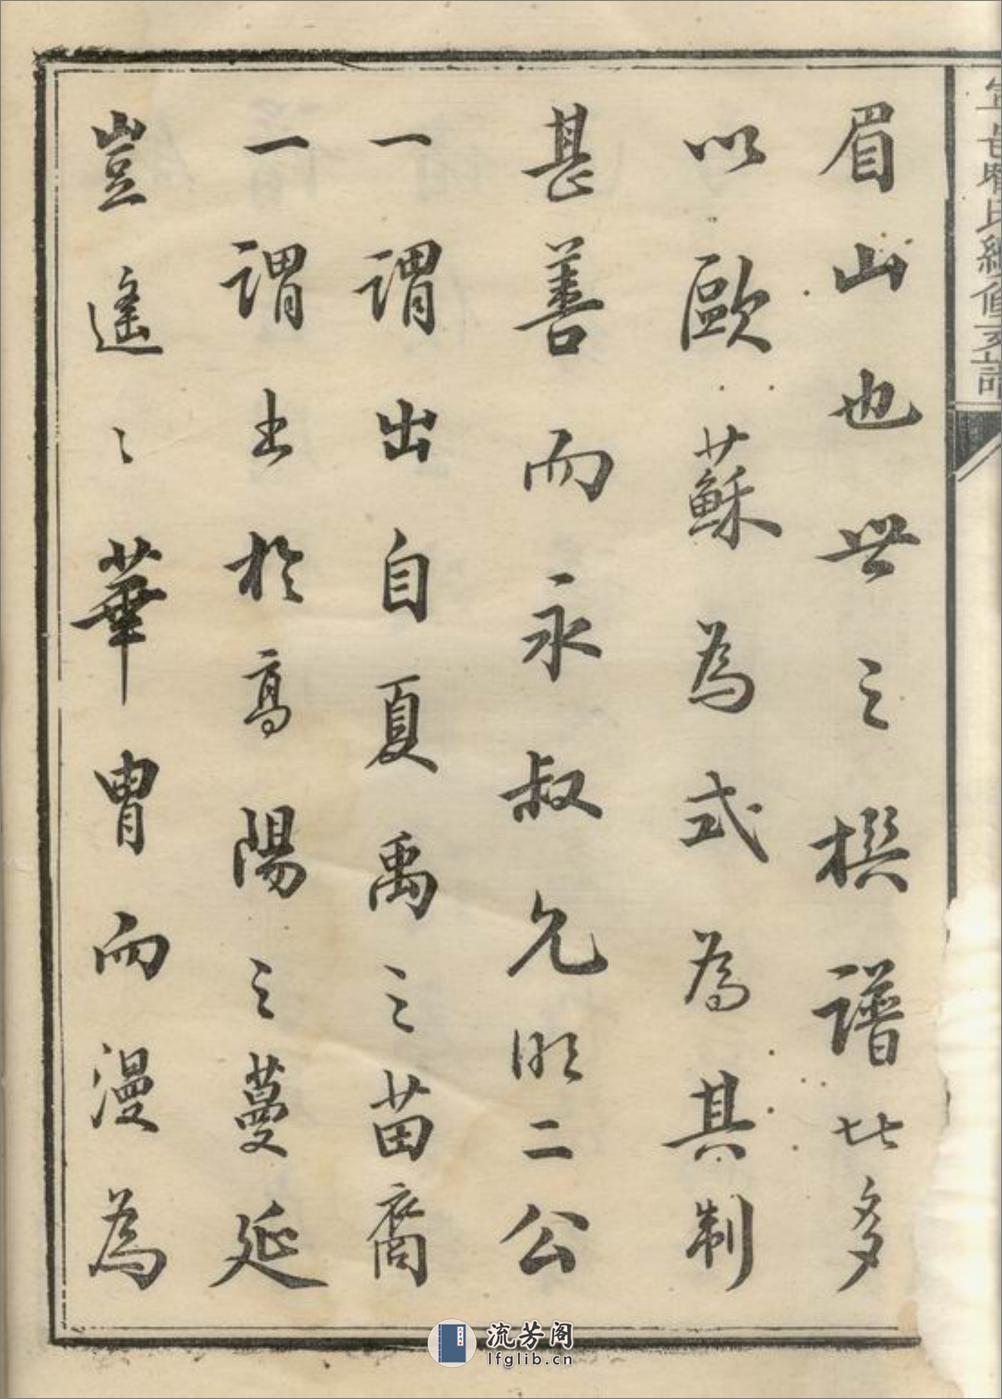 眉山也世之撰譜比多
以歐蘇為式為其制
甚善而永叔允明二公
一謂出自夏禹之苗裔
一謂上於高陽之蔓延
豈遙〻華胄而漫為
氏續修支譜
流芳阁
lfglib.cn